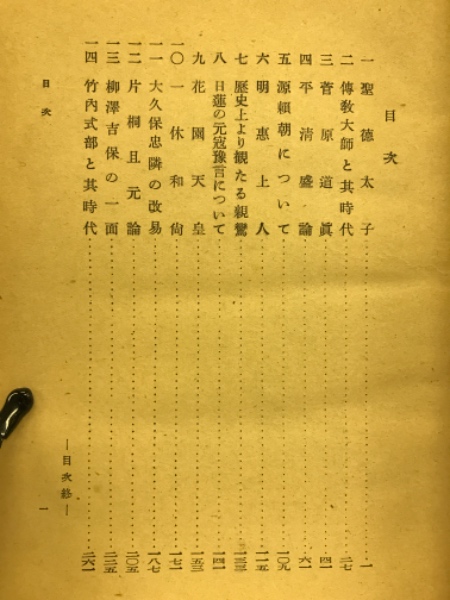 目次
一 聖德太子 一
二 傳敎大師と其時代 二七
三 菅原道眞 四一
四 平淸盛論 六一
五 源賴朝について 一〇九
六 明惠上人 一一五
七 歷史上より觀たる親鸞 一三三
八 日蓮の元寇豫言について 一四一
九 花園天皇 一五三
一〇 一休和尙 一七一
一一 大久保忠隣の改易 一八七
一二 片桐且元論 二〇五
一三 柳澤吉保の一面 二二五
一四 竹內式部と其時代 二六一
―目次終―
目次
一